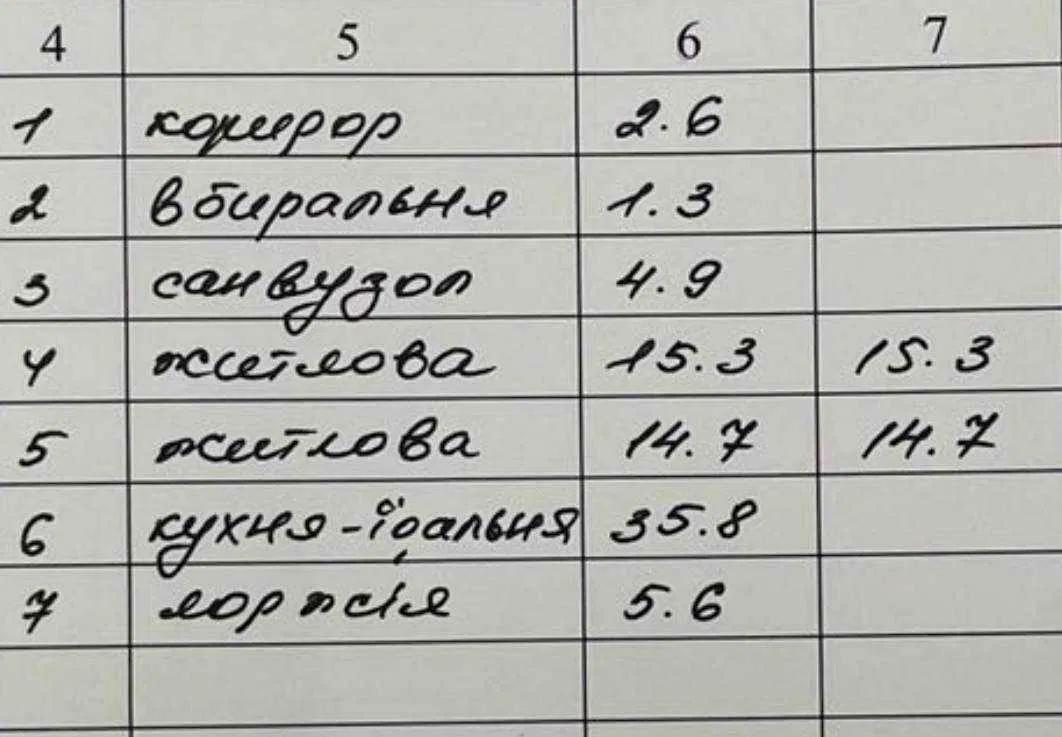 4 5 6 7
1 коридор 2.6
2 вбиральня 1.3
3 санвузол 4.9
4 житлова 15.3 15.3
5 житлова 14.7 14.7
6 кухня-їдальня 35.8
7 лоджія 5.6